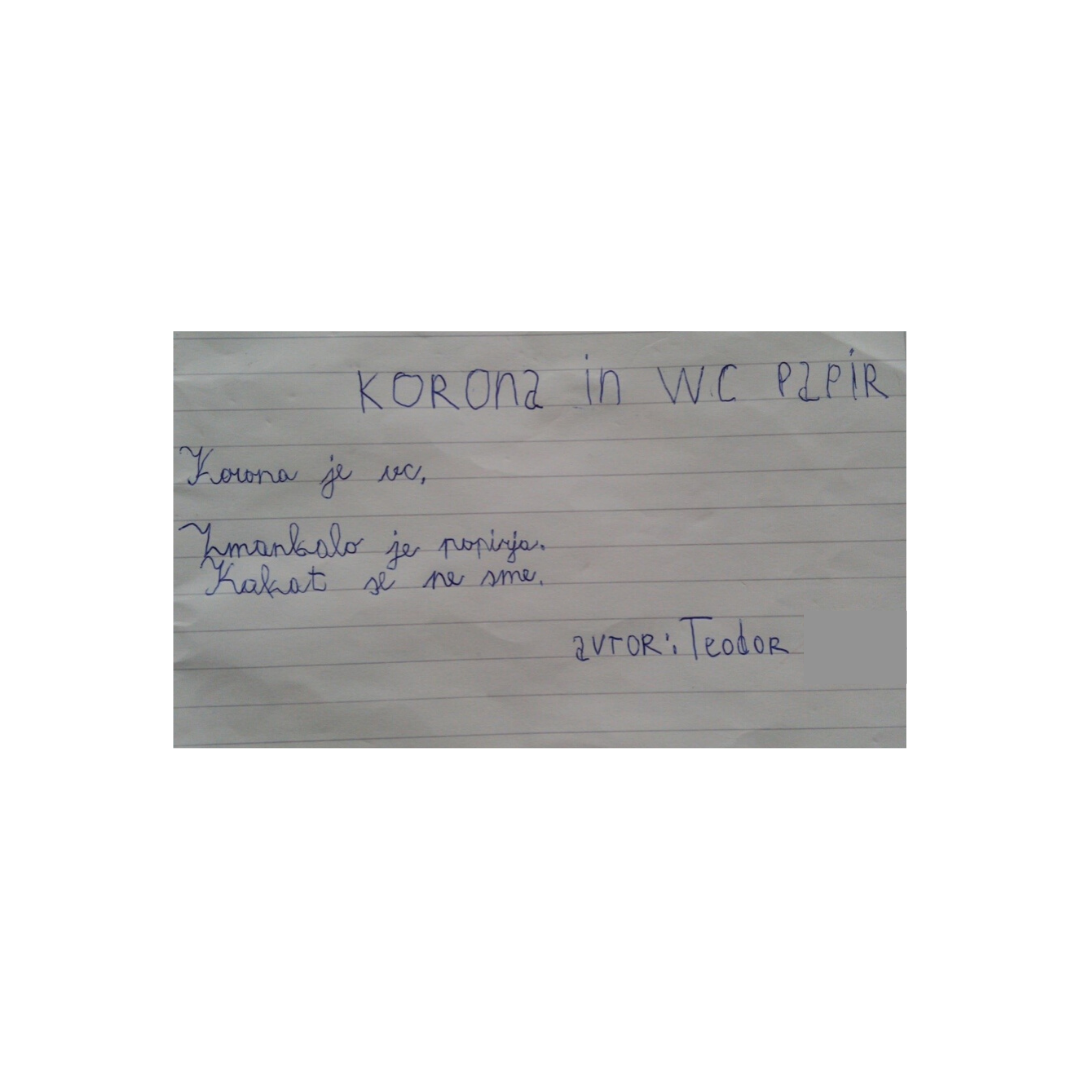 KORONa in WC PaPiR
Korona je vc,
Zmankalo je papirja.
Kakat se ne sme.
avTOR: TeodoR